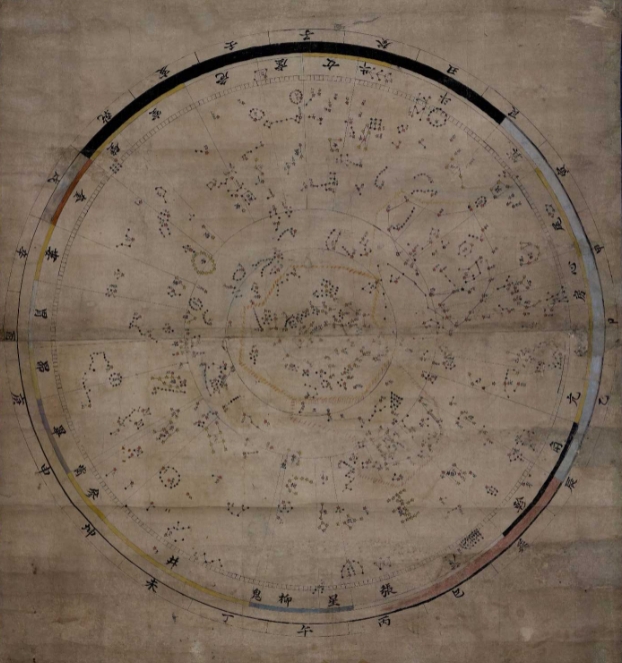 子
癸
丑
艮
寅
甲
卯
乙
辰
巽
巳
丙
午
丁
未
坤
申
庚
酉
辛
戌
乾
亥
壬
女
牛
斗
箕
尾
心
房
氐
亢
角
軫
張
星
柳
鬼
井
參
觜
畢
昴
胃
婁
奎
壁
室
危
虛